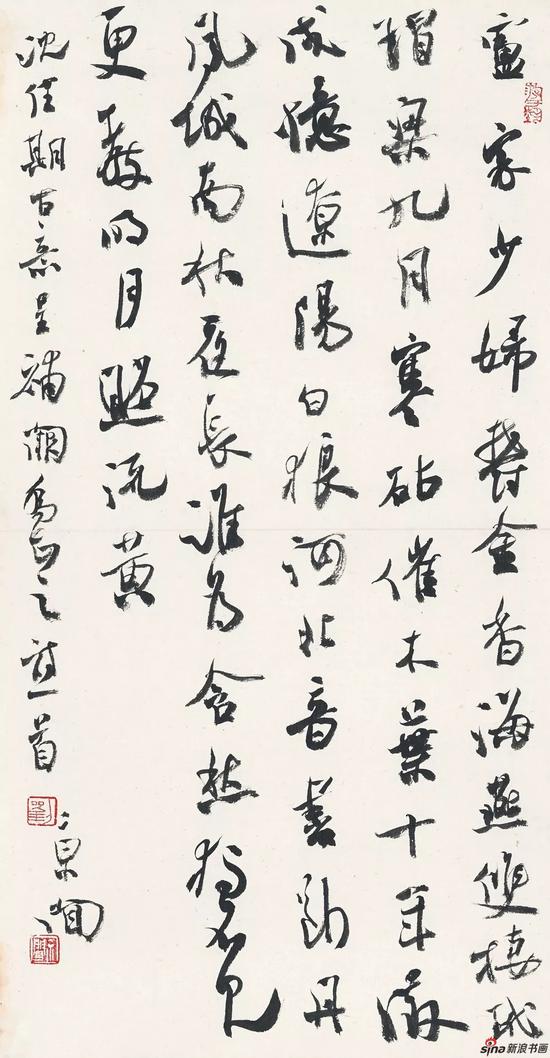 盧家少婦鬱金香海燕雙棲玳
瑁梁九月寒砧催木葉十年征
戍憶遼陽白狼河北音書斷丹
鳳城南秋夜長誰為含愁獨不見
更教明月照流黃
沈佺期古意呈補闕喬知之詩一首
sina新浪书画